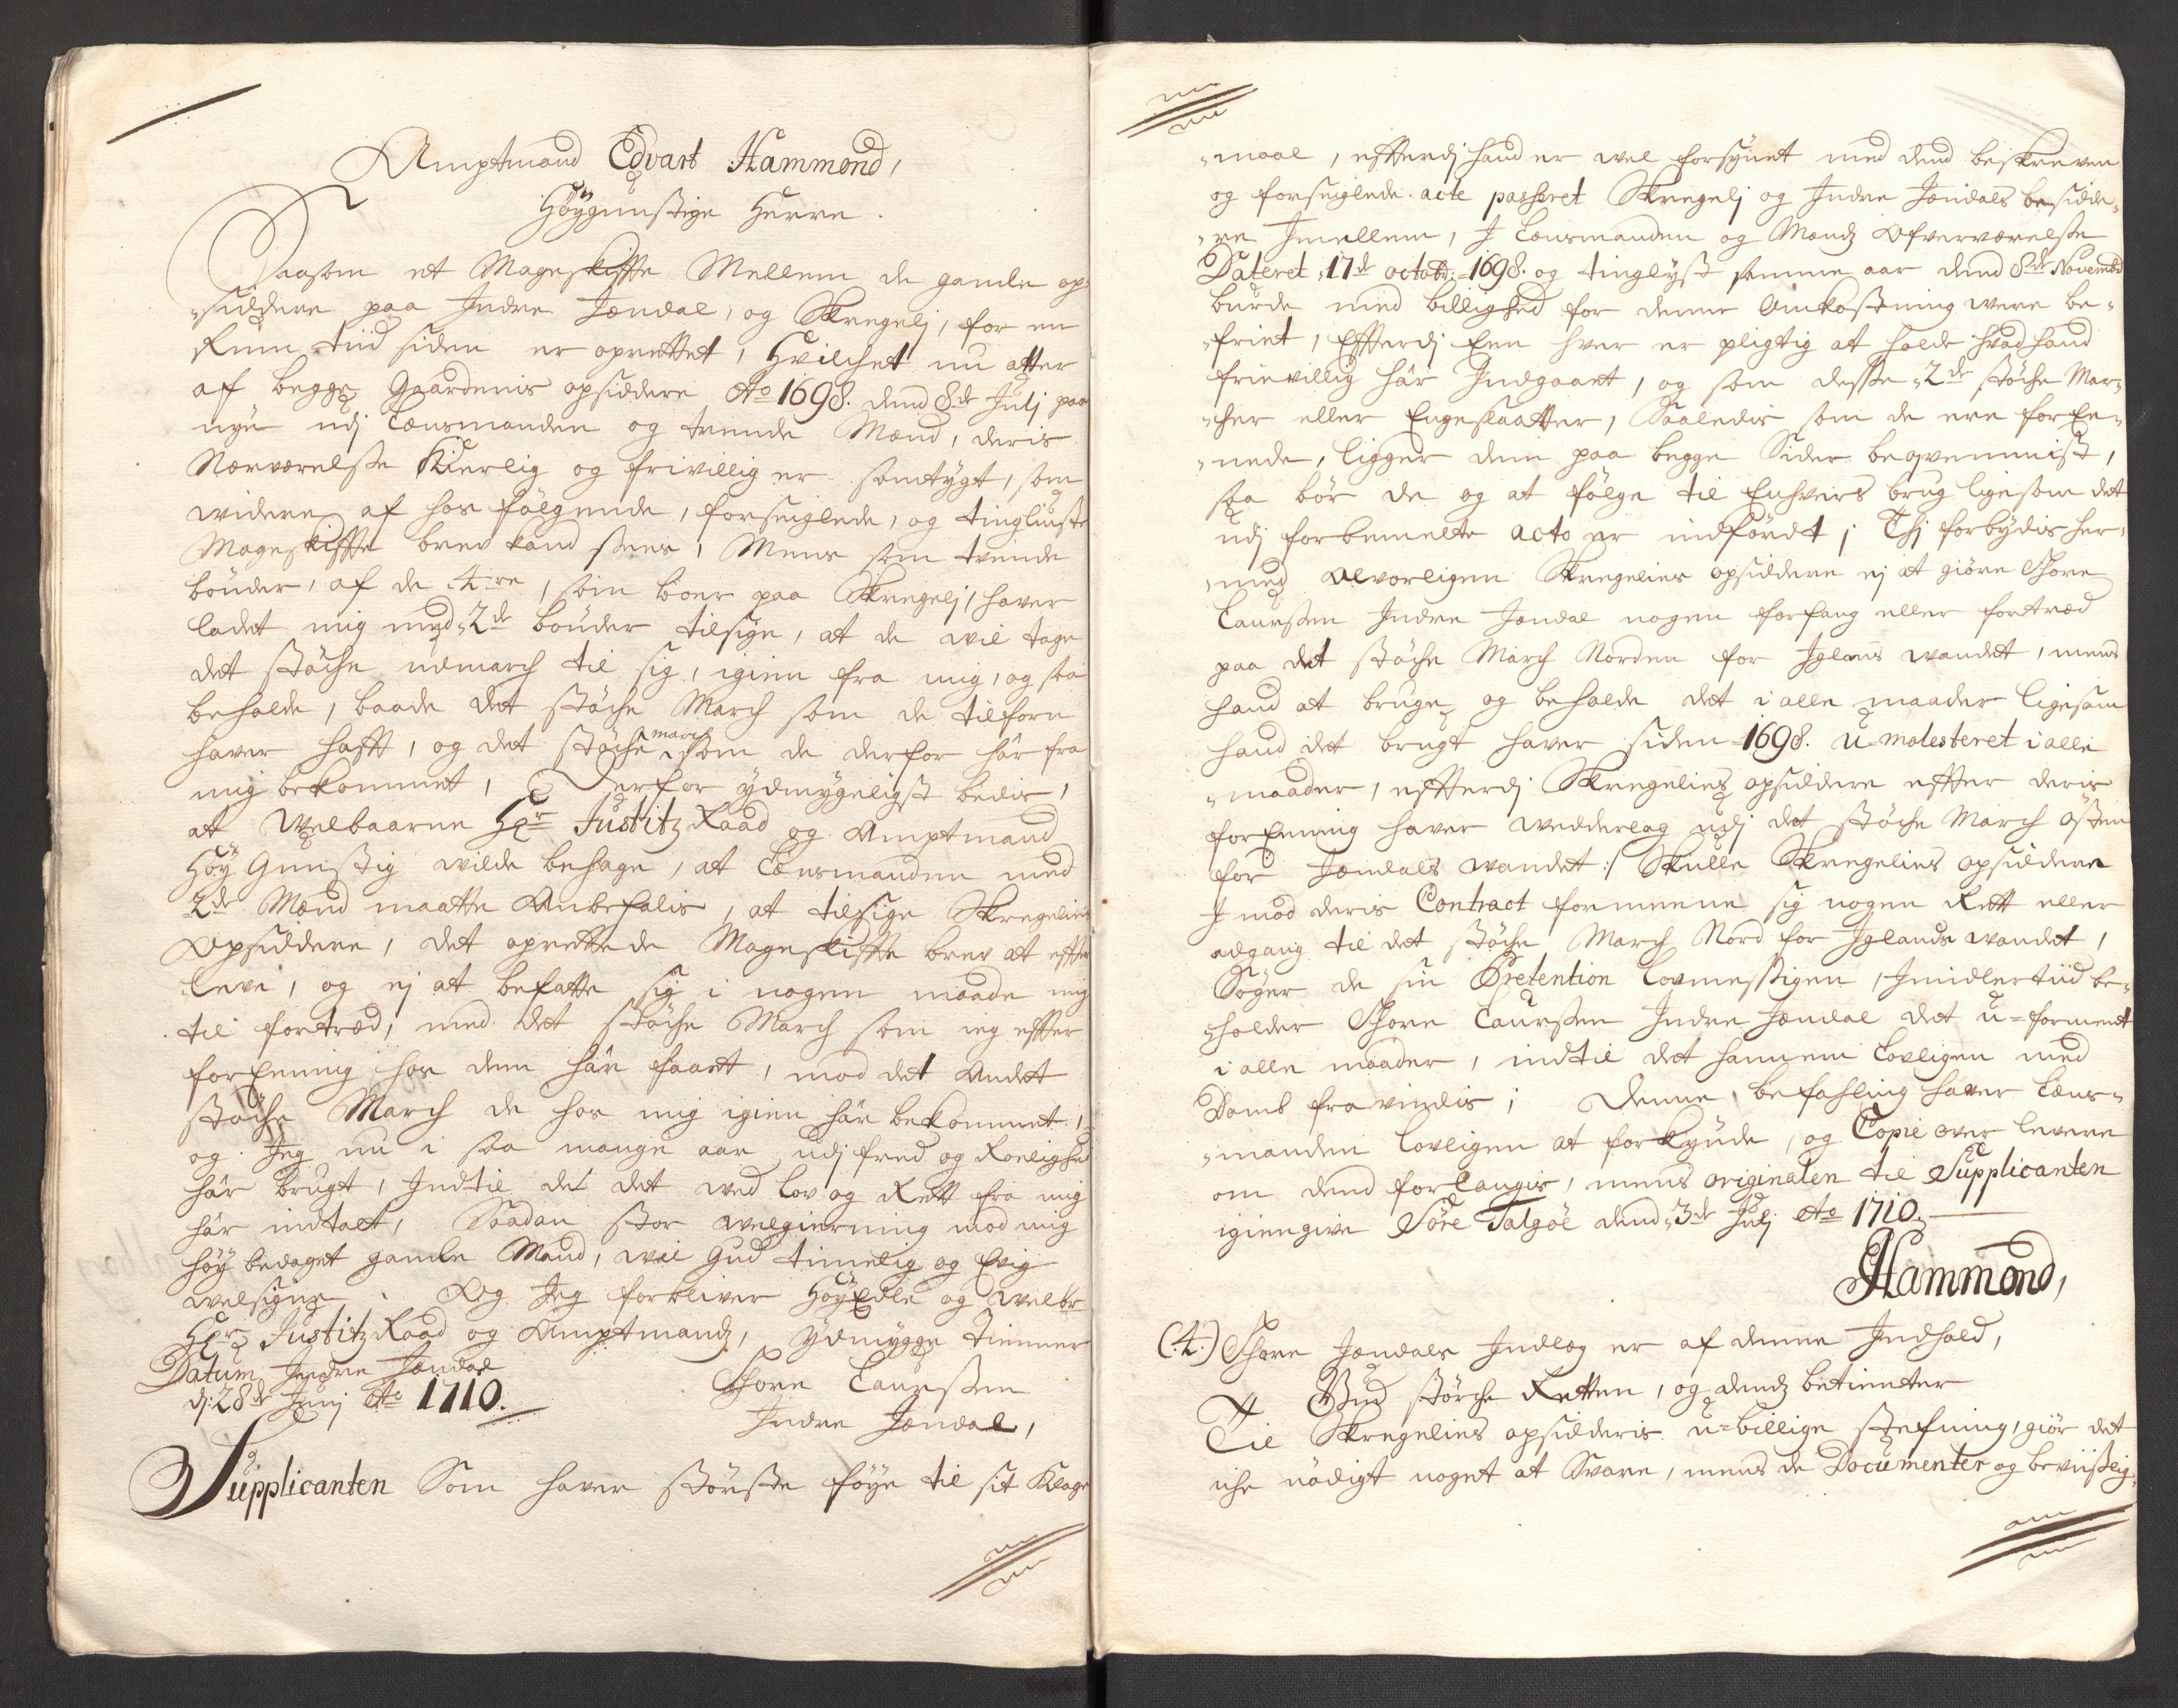 Amptmand Edvart Hammond,
Höÿgunstige Herre.
Saasom et Mageskifte Mellem de gamle op-
siddere paa Indre Jøndal, og Skregelj, for en
Rum tiid siden er oprettet, Hvilchet nu atter
af begge Gaardenis opsiddere Ao 1698. dend 8de Julj paa
nye udj Lænsmanden og trende Mænd, deris
Nærværelse Kierlig og frivillig er samtygt, som
widere af hos følgende, forseiglede, og tingliuste
Mageskifte brev kand sees, Mens som trende
bönder, af de 4re, som boer paa Skregelj, haver
ladet mig med 2de bönder tilsige, at de wil tage
det støche udmarch til sig, igien fra mig, og saa
beholde, baade det støche March som de tilforn
haver hafft, og det støche march som de derfor här fra
mig bekommet, Derfor ydmygeligst bedis,
at Welbaarne Hr Justitz Raad og Amptmand
Höÿ Gunstig wilde behage, at Lænsmanden med
2de Mænd maatte Anbefalis, at tilsige Skregelies
Opsiddere, det oprettede Mageskifte brev at effter
leve, og ej at befatte sig i nogen maade mig
til fortræd, med det støche March som ieg effter
forEening hos dem här faaet, mod det Andet
støche March de hos mig igien här bekommet,
og Jeg nu i saa mange aar udj fred og Roelighed
här brugt, Indtil de det wed lov og Rett fra mig
här indtalt, Saadan stor welgierning mod mig
höÿ bedaget gamle Mand, wil Gud timelig og Evig
welsigne. Og Jeg forbliver HöÿEdle og welbr
Hr Justitz Raad og Amptmandz, ydmygge tienner
Datum Indre Jøndal
dj: 28de Junj Ao 1710.
Thore Laurssen
Indre Jøndal,
Supplicanten Som haver største föÿe til sit Klage
-maal, effterdj hand er wel forsÿnet med dend beskreven
og forseiglede acte passeret Skregelj og Indre Jøndals besidde-
-re Imellem, I Lænsmanden og Mændz Ofverværelse
Dateret 17de octobr: 1698. og tinglyst samme aar dend 8de Novembr
burde med billighed for denne Omkostning were be-
-friet, Effterdj Een hver er pligtig at holde hvad hand
frievillig här Indgaaet, og som desse 2de støche Mar-
-cher eller Engeslaatter, Saaledis som de ere forEe-
-nede, ligger dem paa begge Sider beqvemmist,
saa bör de og at fölge til Enhvers brug ligesom det
udj forbemelte acto er indfördt; Thj forbydis her-
-med Alvorligen Skregelies opsiddere ej at giöre Thore
Laurssen Indre Jøndal nogen forfang eller fortræd
paa det støche March Norden for Iglands wandet, mens
hand at bruge og beholde det i alle maader ligesom
hand det brugt haver siden 1698. u-molesteret i alle
-maader, effterdj Skregelies opsiddere effter deris
forEening haver wedderlag udj det støche March østen
for Jøndals wandet :/ Skulle Skregelies opsiddere
I mod deris Contract formeene sig nogen Rett eller
adgang til det støche March Nord for Iglands wandet,
Söger de sin Prætention lovmessigen, Imidlertiid be-
-holder Thore Laurssen Indre Jøndal det u-formeent
i alle maader, indtil det hannem lovligen med
Domb fravindis; Denne befahling haver Læns-
-manden lovligen at forkÿnde, og Copie over levere
om dend forlangis, mens originalen til Supplicanten
igiengive Söre Talgöe dend 3de Julj Ao 1710.
Hammond,
(4.) Thore Jøndals Indlæg er af denne Indhold,
Gud størche Retten, og dendz betienter
Til Skregelies opsidderis u-billige stefning, giör det
iche nödigt noget at Svare, mens de Documenter og beviislig-